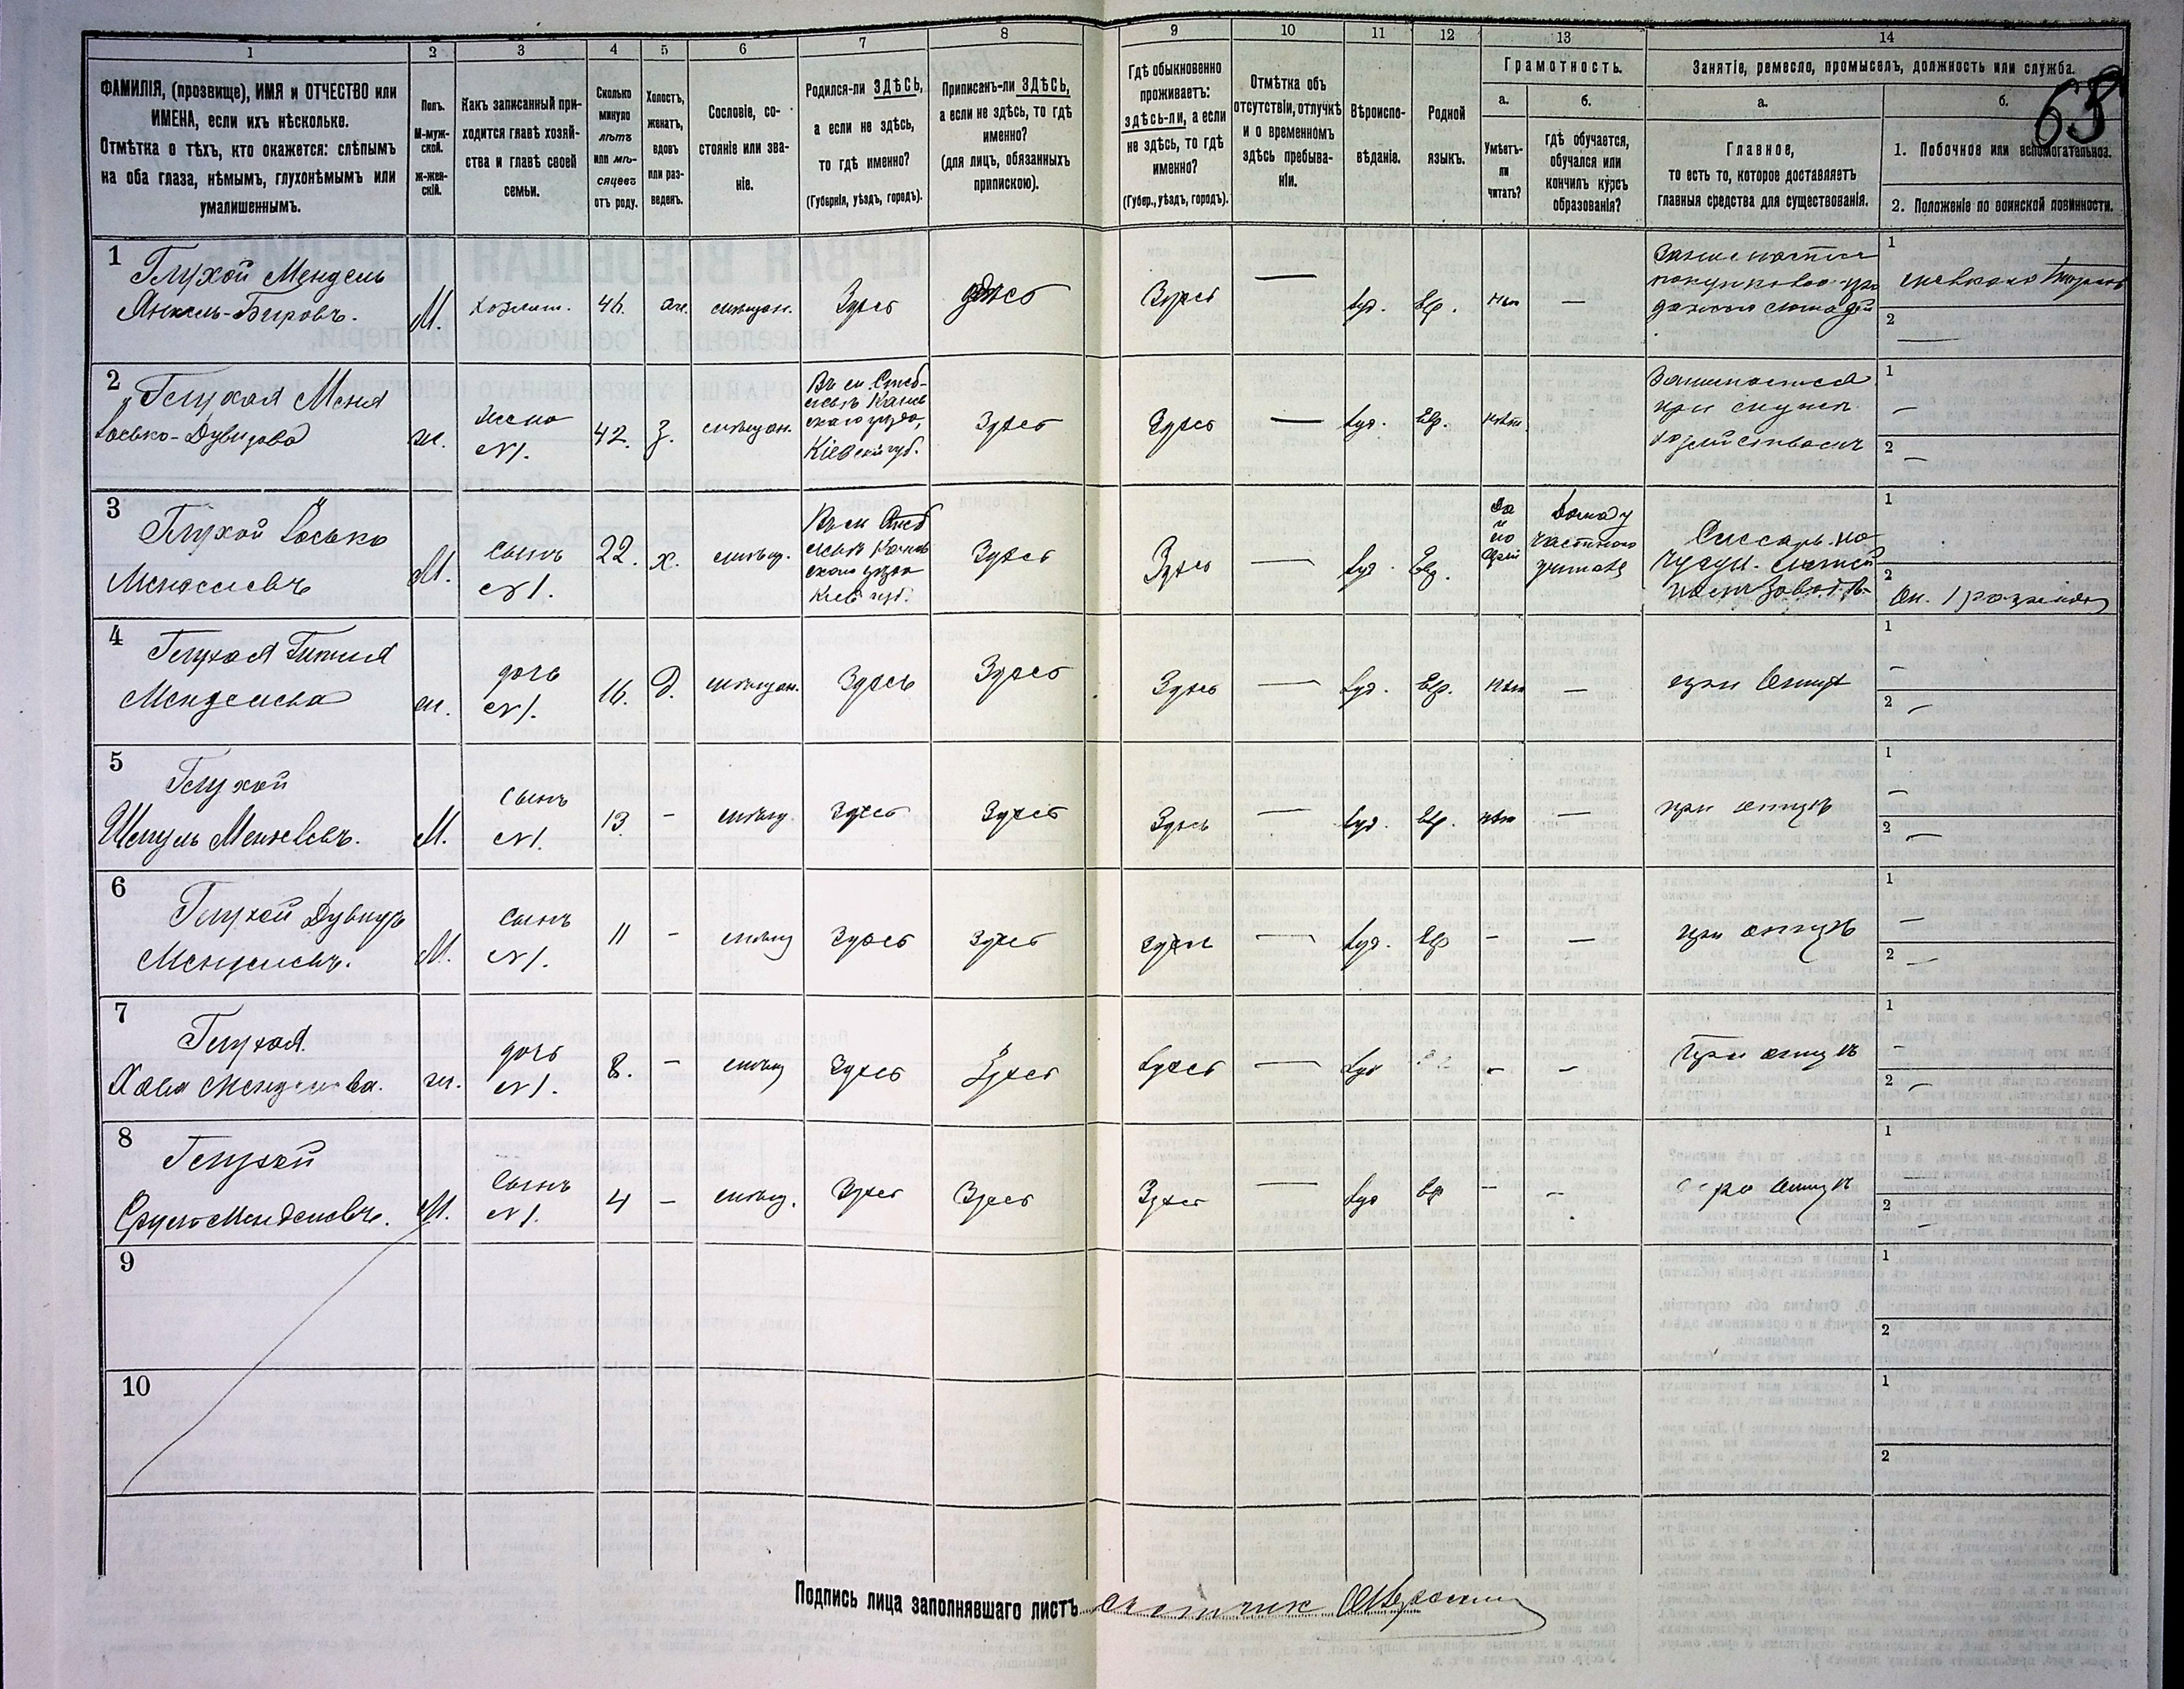 1 2 3 4 5 6 7 8 9 10 11 12 13 14
ФАМИЛІЯ, (прозвище), ИМЯ и ОТЧЕСТВО или
ИМЕНА, если ихъ нѣсколько.
Отмѣтка о тѣхъ, кто окажется: слѣпымъ
на оба глаза, нѣмымъ, глухонѣмымъ или
умалишеннымъ.
Полъ.
М-муж-
ской.
ж-жен-
скій.
Какъ записанный при-
ходится главѣ хозяй-
ства и главѣ своей
семьи.
Сколько
минуло
лѣтъ
или мѣ-
сяцевъ
отъ роду.
Холостъ,
женатъ,
вдовъ
или раз-
веденъ.
Сословіе, со-
стояніе или зва-
ніе.
Родился-ли ЗДѢСЬ,
а если не здѣсь,
то гдѣ именно?
(Губернія, уѣздъ, городъ).
Приписанъ-ли ЗДѢСЬ,
а если не здѣсь, то гдѣ
именно?
(для лицъ, обязанныхъ
припискою).
Гдѣ обыкновенно
проживаетъ:
здѣсь-ли, а если
не здѣсь, то гдѣ
именно?
(Губер., уѣздъ, городъ).
Отмѣтка объ
отсутствіи, отлучкѣ
и о временномъ
здѣсь пребыва-
ніи.
Вѣроиспо-
вѣданіе.
Родной
языкъ.
Грамотность.
а.
Умѣетъ-
ли
читать?
б.
гдѣ обучается,
обучался или
кончилъ курсъ
образованія?
Занятіе, ремесло, промыселъ, должность или служба.
а.
Главное,
то есть то, которое доставляетъ
главныя средства для существованія.
б.
1. Побочное или вспомогательное.
2. Положеніе по воинской повинности.
1
Глухой Мендель
Янкель-Беровъ.
М.
хозяин.
46.
ж.
мѣщан.
Здѣсь
здѣсь
Здѣсь
—
Іуд.
Евр.
нѣт
—
1
2
—
2
Глухая Меня
Іосько-Дувидова
ж.
жена
N1.
42.
З.
мѣщан.
Кіевской губ.
Здѣсь
Здѣсь
—
Іуд.
Евр.
нѣт
Занимается
при мужѣ
хозяйствомъ
1
—
2
—
3
Глухой Іосько
Менделевъ
М.
сынъ
N1.
22.
х.
мѣщ.
Здѣсь
Здѣсь
—
Іуд.
Евр.
Да
Дома у
частного
учителя
Слесарь на
1
2
4
Глухая Гитля
Менделева
ж.
дочь
N1.
16.
д.
мѣщан.
Здѣсь
Здѣсь
Здѣсь
—
Іуд.
Евр.
нѣт
—
при отцѣ
1
—
2
—
5
Глухой
Шмуль Менделевъ.
М.
сынъ
N1.
13
-
мѣщ.
Здѣсь
Здѣсь
Здѣсь
—
Іуд.
Евр.
нѣт
—
при отцѣ
1
—
2
—
6
Глухой Дувидъ
Менделевъ.
М.
сынъ
N1.
11
-
мѣщ
Здѣсь
Здѣсь
Здѣсь
—
Іуд.
Евр
-
—
при отцѣ
1
—
2
—
7
Глухая
Хава Менделева.
ж.
дочь
N1.
8.
-
мѣщ
Здѣсь
Здѣсь
Здѣсь
—
Іуд
-
-
При отцѣ
1
-
2
—
8
Глухой
Сруль Менделевъ.
М.
сынъ
N1.
4
-
мѣщ.
Здѣсь
Здѣсь
Здѣсь
—
Іуд
Евр
-
-
при отцѣ
1
—
2
—
9
1
2
10
1
2
Подпись лица заполнявшаго листъ
счетчик